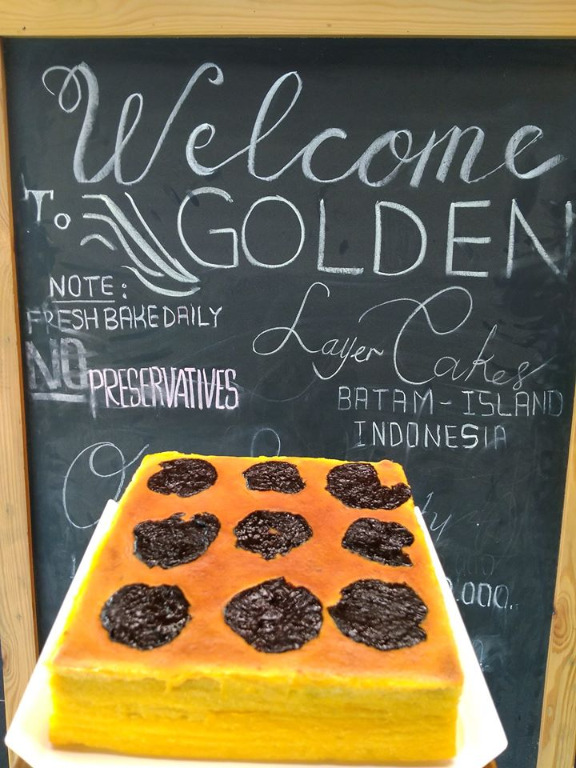 Welcome
To GOLDEN
NOTE:
FRESH BAKE DAILY
Layer Cakes
NO PRESERVATIVES
BATAM-ISLAND
INDONESIA